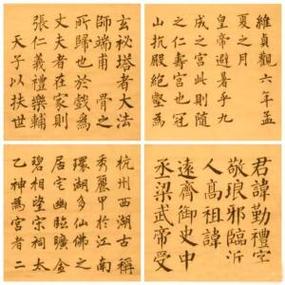 維貞觀六年孟
夏之月
皇帝避暑乎九
成之宮此則隨
之仁壽宮也冠
山抗殿絕壑為
玄秘塔者大法
師端甫骨之
所歸也於戲為
丈夫者在家則
張仁義禮樂輔
天子以扶世
君諱勤禮字
敬琅邪臨沂
人高祖諱
遠齊御史中
丞梁武帝受
杭州西湖古稱
秀麗甲于江南
環湖多仙佛之
居宅幽臨曠金
碧相望宗祠太
乙神為宮者二